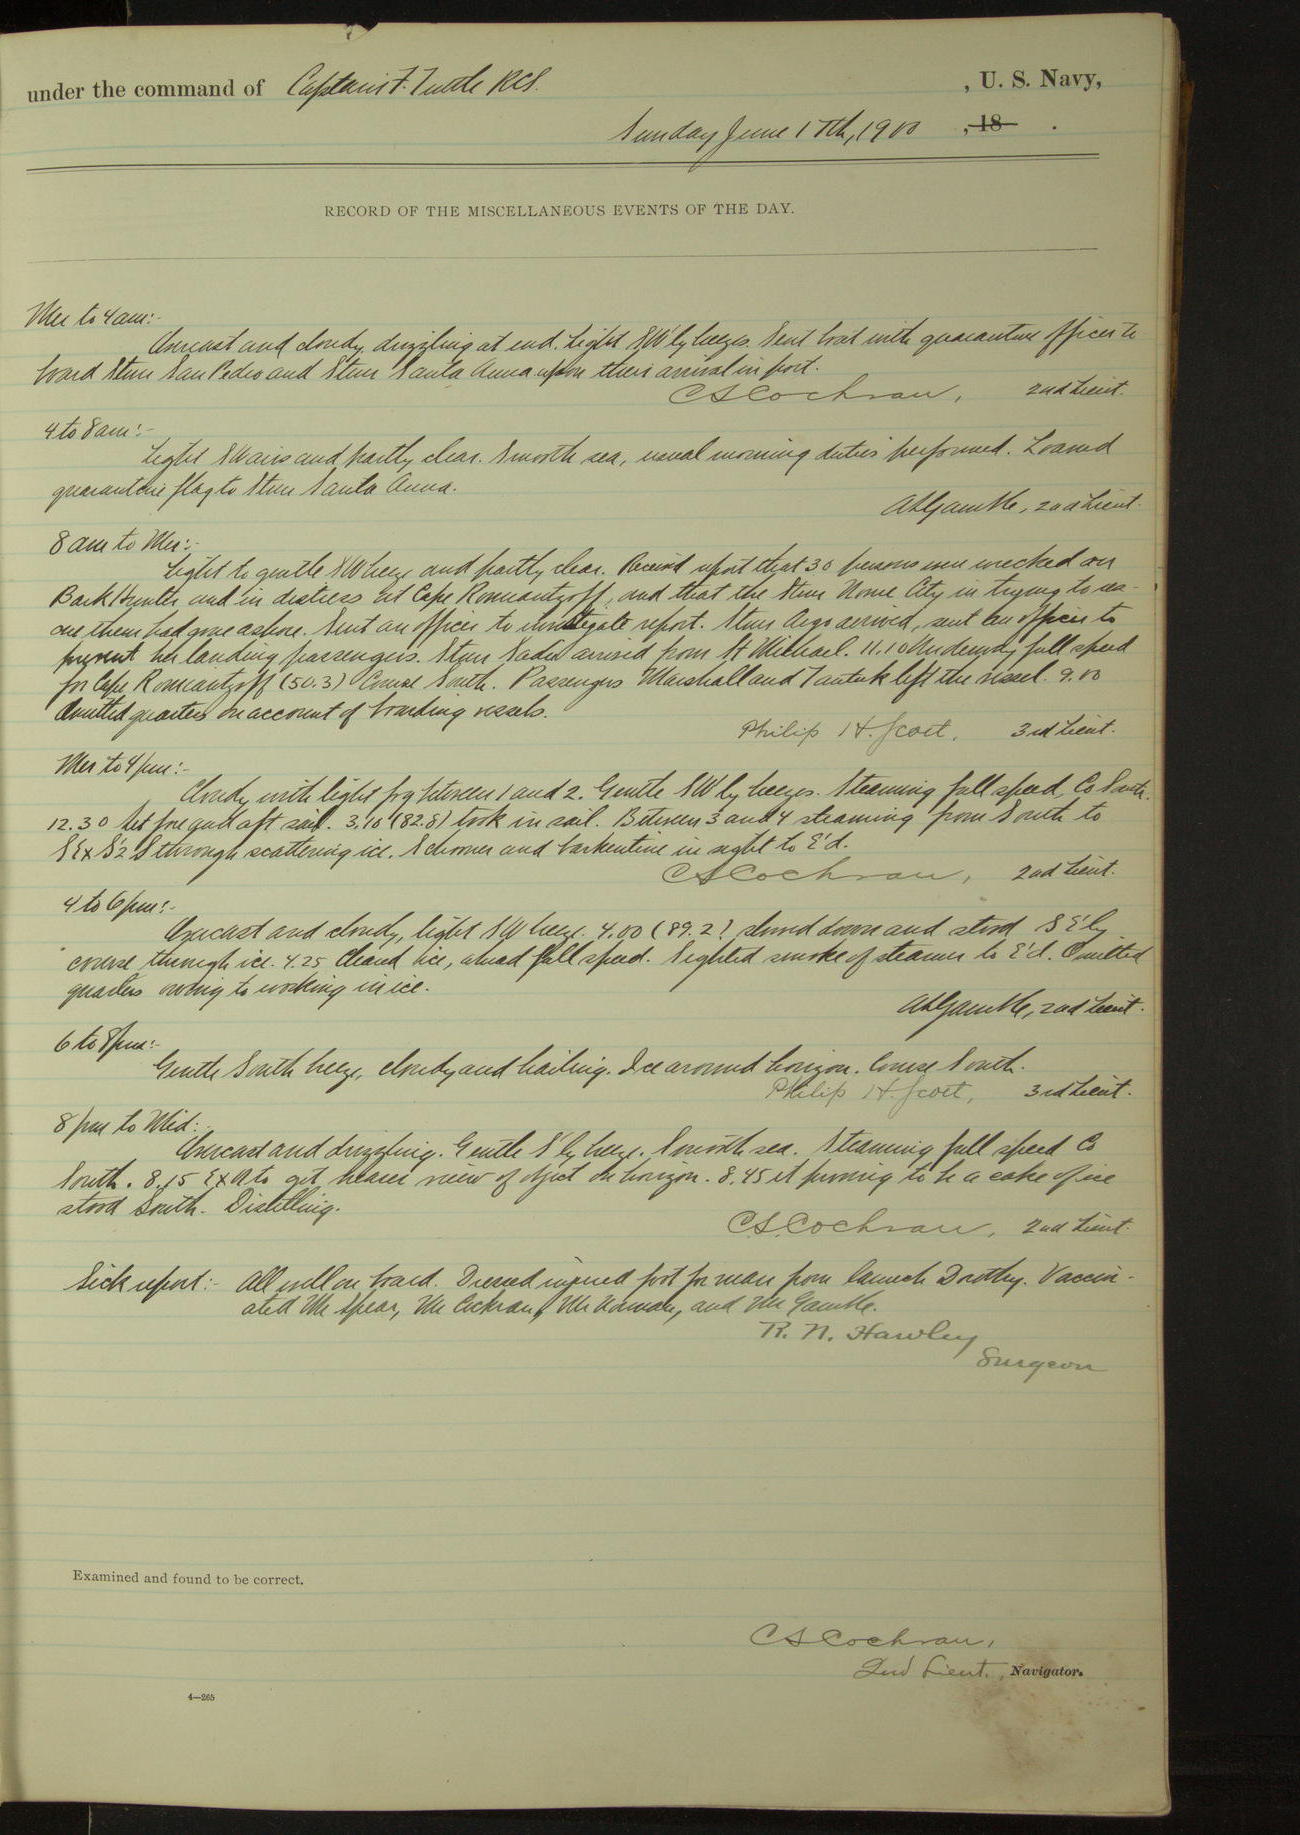 under the command of Captain F. Tuttle RCS. , U. S. Navy,
Sunday June 17th, 1900 , 18 .
RECORD OF THE MISCELLANEOUS EVENTS OF THE DAY.
Mer to 4 am:-
Overcast and cloudy, drizzling at end. Light SW'ly breezes. Sent boat with quarantine officer to
board Stmr San Pedro and Stmr Santa Anna upon their arrival in port.
C S Cochran, 2nd Lieut.
4 to 8 am:-
Light SW airs and partly clear. Smooth sea, usual morning duties performed. Loaned
quarantine flag to Stmr Santa Anna.
A L Gamble, 2nd Lieut.
8 am to Mer:-
Light to gentle SW breeze and partly clear. Received report that 30 persons were wrecked on
Bark Hunter and in distress at Cape Romantzoff, and that the Stmr Nome City in trying to res-
cue them had gone ashore. Sent an officer to investigate report. Stmr Argo arrived, sent an officer to
prevent her landing passengers. Stmr Sadie arrived from St Michael. 11.10 Underway full speed
for Cape Romantzoff (50.3) Course South. Passengers Marshall and left the vessel. 9.00
Omitted quarters on account of boarding vessels.
Philip H. Scott, 3rd Lieut.
Mer to 4 pm:-
Cloudy with light fog between 1 and 2. Gentle SW'ly breezes. Steaming full speed, Co South.
12.30 Set fore and aft sail. 3.10 (82.8) took in sail. Between 3 and 4 steaming from South to
SExS½S through scattering ice. Schooner and barkentine in sight to E'd.
C S Cochran, 2nd Lieut.
4 to 6 pm:-
Overcast and cloudy, light SW breeze. 4.00 (89.2) slowed down and stood SE'ly
course through ice. 4.25 Cleared ice, ahead full speed. Sighted smoke of steamer to E'd. Omitted
quarters owing to working in ice.
A L Gamble, 2nd Lieut.
6 to 8 pm:-
Gentle South breeze, cloudy and hailing. Ice around horizon. Course South.
Philip H. Scott, 3rd Lieut.
8 pm to Mid:-
Overcast and drizzling. Gentle S'ly breeze. Smooth sea. Steaming full speed Co
South. 8.15 to get nearer view of object on horizon. 8.45 it proving to be a cake of ice
stood South. Distilling.
C.S. Cochran, 2nd Lieut.
Sick report:- All well on board. Dressed injured foot for man from launch Dorothy. Vaccin-
ated Mr Spear, Mr Cochran, Mr and Mr Gamble.
R. N. Hawley
Surgeon
Examined and found to be correct.
C S Cochran,
2nd Lieut. , Navigator.
4—265